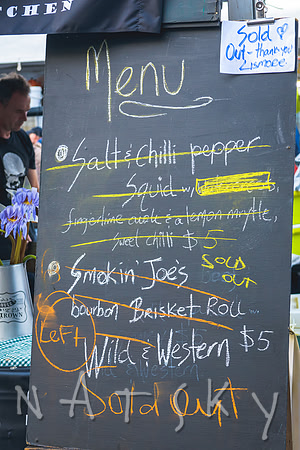 TCHEN
Sold
Out - thank you
Lismore
Menu
Salt & Chilli pepper
Squid w/
fingerlime aioli & a lemon myrtle,
sweet chilli $5
SOLD
OUT
Smokin' Joe's
bourbon Brisket Roll
LeFT
Wild & Western $5
Sold Out
NATSKY